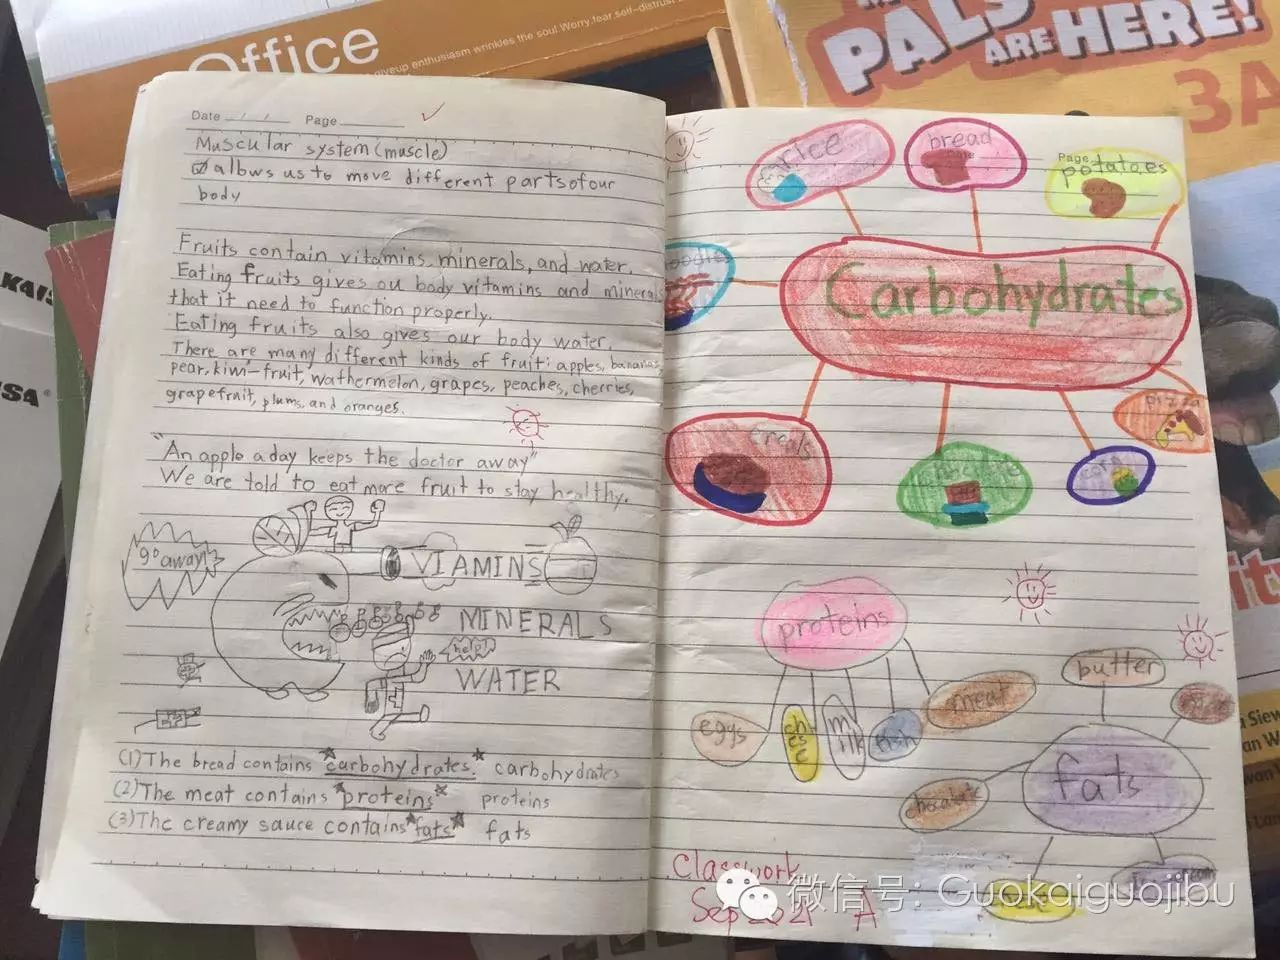 Office
giveup enthusiasm wrinkles the soul.Worry,fear,self-distrust
PALS
ARE HERE!
3A
KAIS
USA
Date / / Page
Muscular system(muscle)
allows us to move different parts of our
body
Fruits contain vitamins, minerals, and water.
Eating fruits gives ou body vitamins and minerals
that it need to function properly.
Eating fruits also gives our body water.
There are many different kinds of fruit: apples, bananas,
pear, kiwi-fruit, wathermelon, grapes, peaches, cherries,
grapefruit, plums, and oranges.
"An apple a day keeps the doctor away"
We are told to eat more fruit to stay healthy.
go away!
VIAMINS
MINERALS
help!
WATER
(1)The bread contains *carbohydrates.* carbohydrates
(2)The meat contains *proteins* proteins
(3)The creamy sauce contains *fats* fats
rice
bread
Page
potatoes
Carbohydrates
pizza
proteins
eggs
cheese
milk
fish
meat
butter
fats
chocolate
Classwork
Sep
A
微信号: Guokaiguojibu